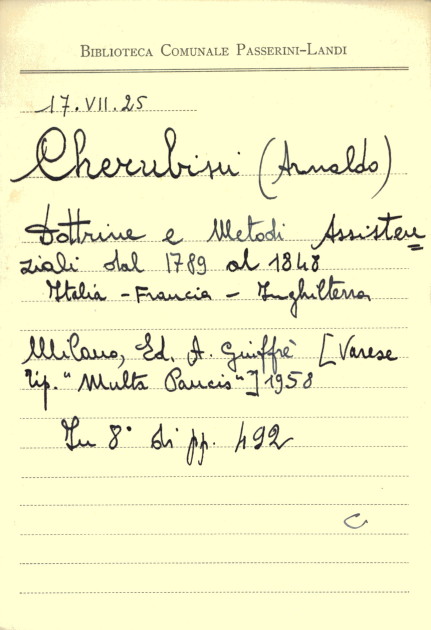 BIBLIOTECA COMUNALE PASSERINI-LANDI
17.VII.25
Cherubini (Arnaldo)
Dottrine e Metodi Assisten=
ziali dal 1789 al 1848
Italia - Francia - Inghilterra
Milano, Ed. A. Giuffrè [Varese
Tip. "Multa Paucis"] 1958
In 8° di pp. 492
C